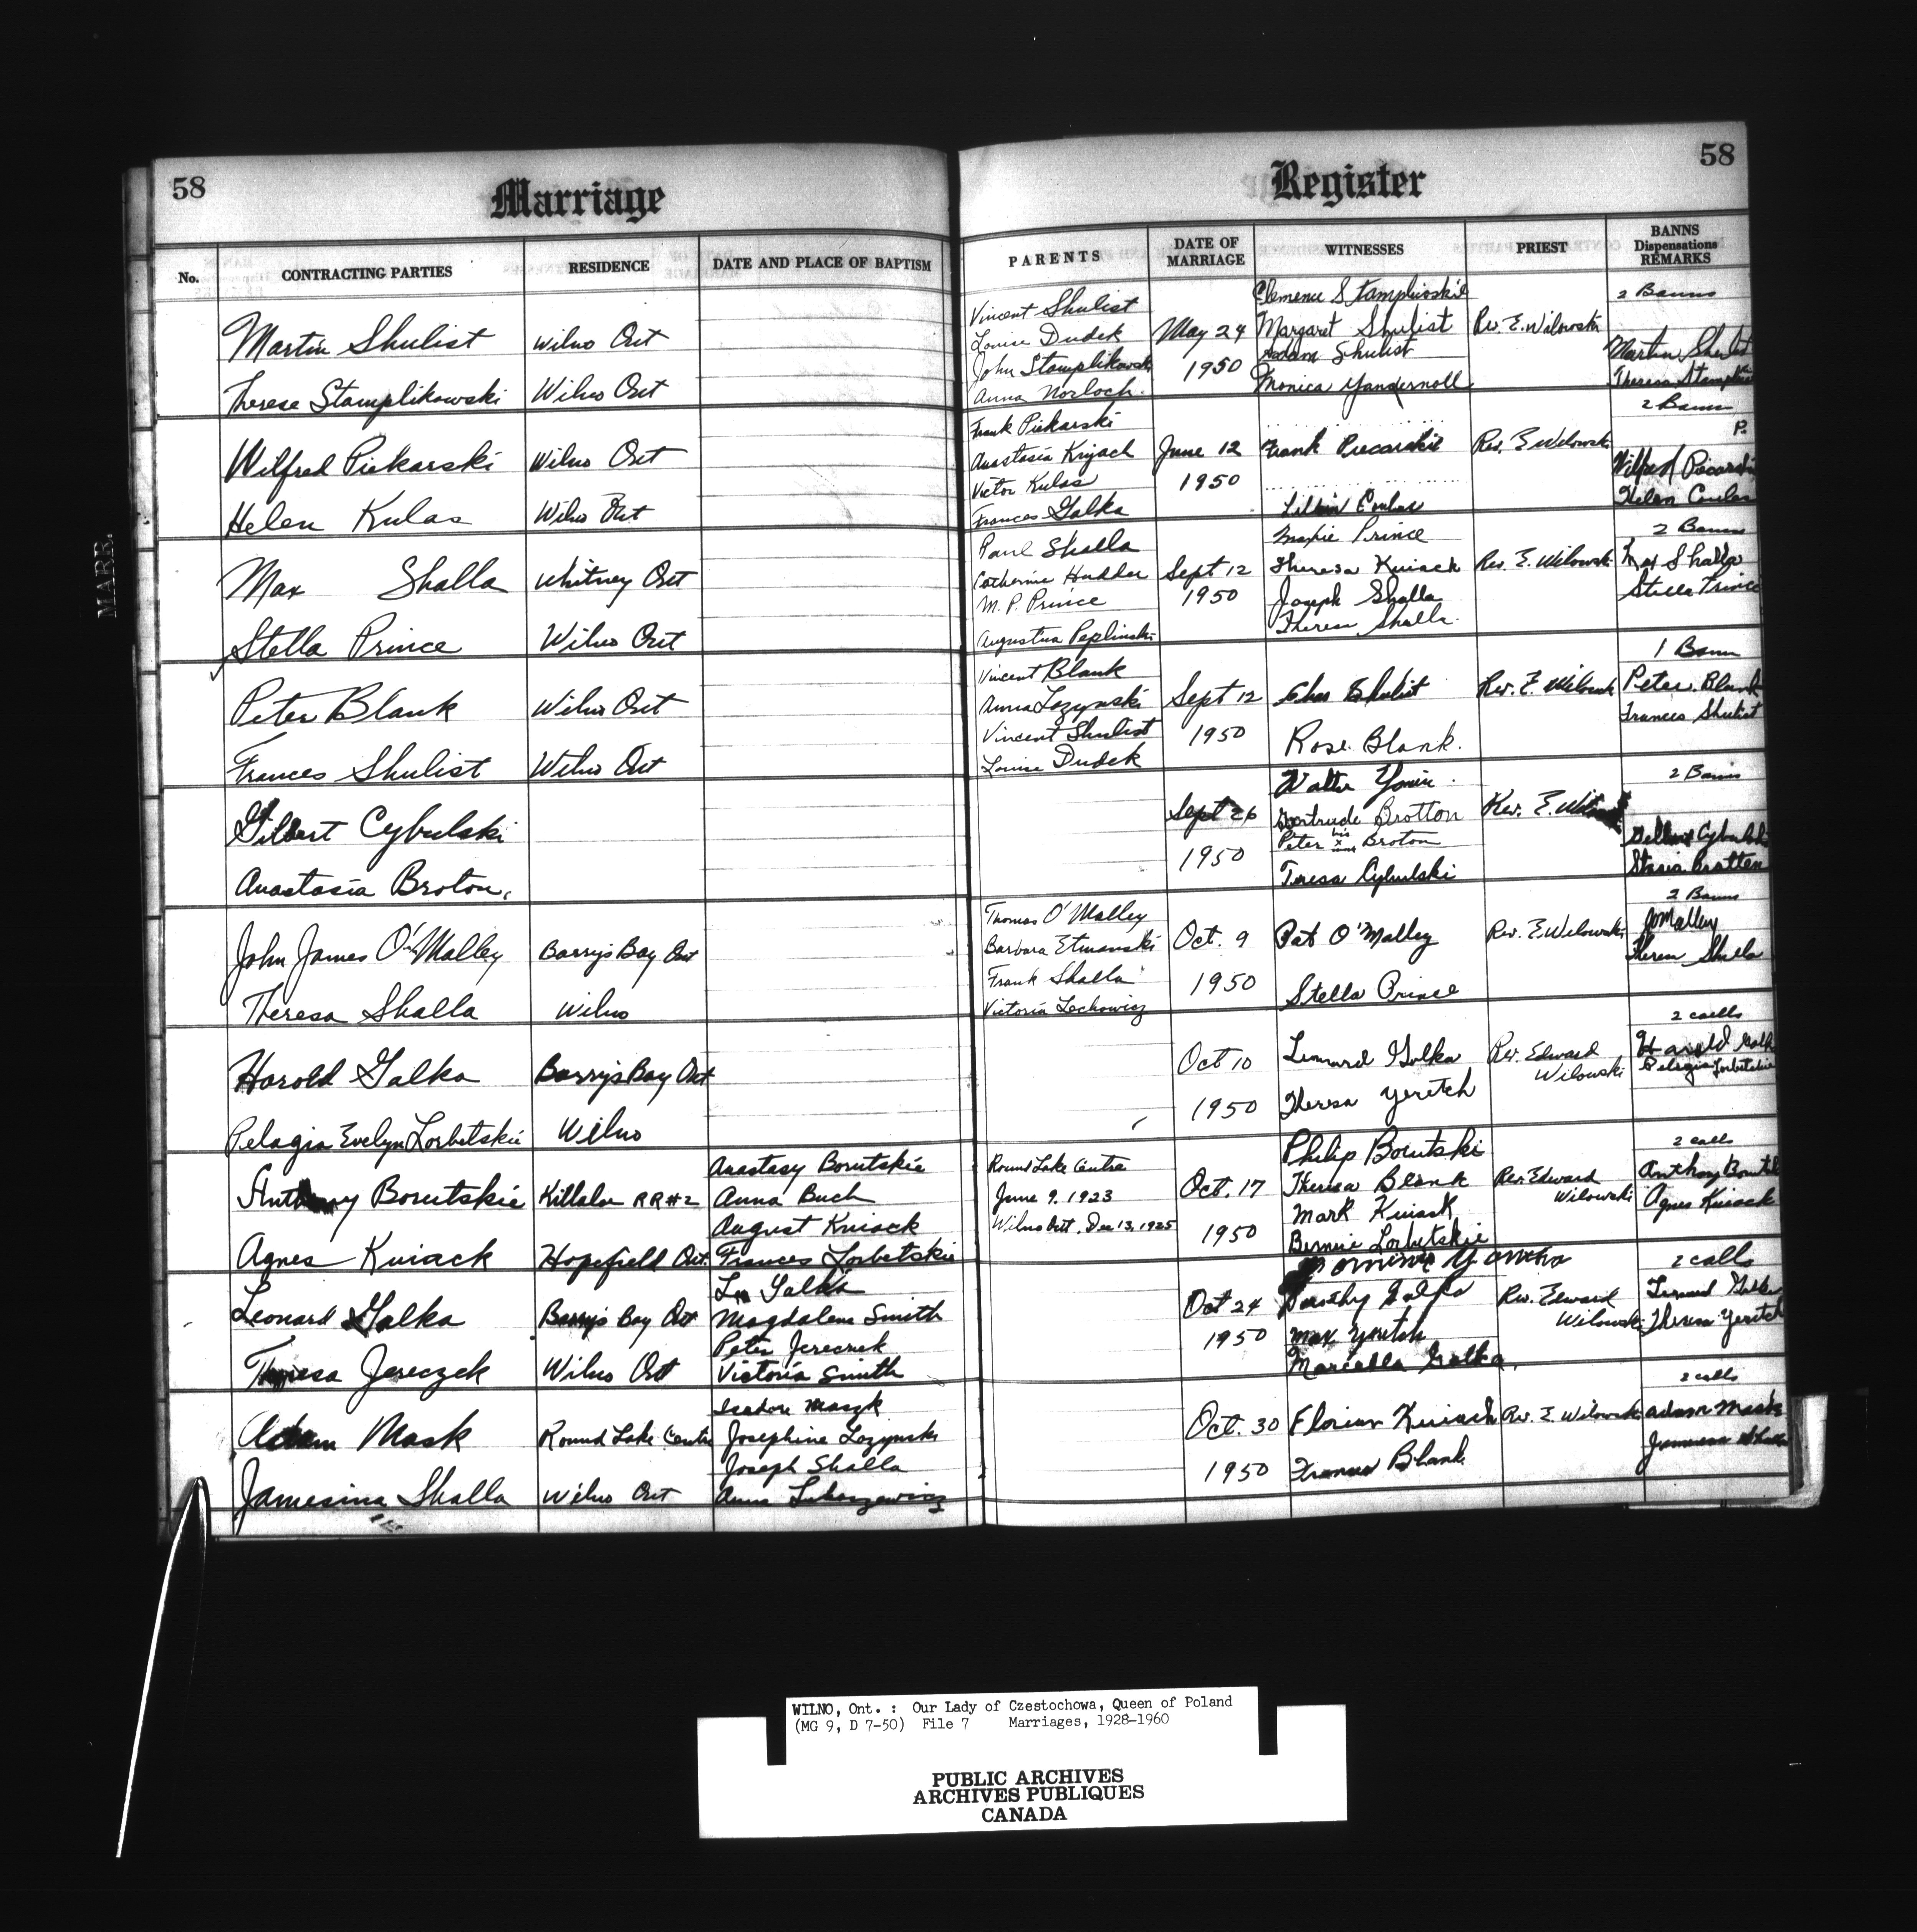 58
Marriage
Register
58
No.
CONTRACTING PARTIES
RESIDENCE
DATE AND PLACE OF BAPTISM
PARENTS
DATE OF MARRIAGE
WITNESSES
PRIEST
BANNS
Dispensations
REMARKS
MARR.
Martin Shulist
Wilno Ont
Therese Stamplikowski
Wilno Ont
Vincent Shulist
Louise Dudek
John Stamplikowski
Anna Norloch.
May 24
1950
Clemence Stamplicoskie
Margaret Shulist
Adam Shulist
Monica Yandernoll
Rev. E. Wilowski
2 Banns
Martin Shulist
Theresa
Wilfred Piekarski
Wilno Ont
Helen Kulas
Wilno Ont
Frank Piekarski
Anastasia
Victor Kulas
Frances Galka
June 12
1950
Frank Piecarskie
Rev. E. Wilowski
2 Banns
P.
Wilfred
Helen Coulas
Max Shalla
Whitney Ont
Stella Prince
Wilno Ont
Paul Shalla
Catherine Hudder
M. P. Prince
Augustina Peplinski
Sept 12
1950
Prince
Theresa Kuiack
Joseph Shalla
Theresa Shalla.
Rev. E. Wilowski
2 Banns
Max Shalla
Stella Prince
Peter Blank
Wilno Ont
Frances Shulist
Wilno Ont
Vincent Blank
Anna Lozynski
Vincent Shulist
Louise Dudek
Sept 12
1950
Shulist
Rose Blank.
Rev. E. Wilowski
1 Bann
Peter Blank
Frances Shulist
Gilbert Cybulski
Anastasia Broton.
Sept 26
1950
Walter
Gertrude Brotton
Peter his x mark Broton
Teresa Cybulski
Rev. E.
2 Banns
Cybulski
Stasia Brotten
John James O'Malley
Barry's Bay Ont
Theresa Shalla
Wilno
Thomas O'Malley
Barbara Etmanski
Frank Shalla
Victoria Lechowicz
Oct. 9
1950
Pat O'Malley
Stella Prince
Rev. E. Wilowski
2 Banns
Theresa Shalla
Harold Galka
Barry's Bay Ont
Pelagia Evelyn Lorbetskie
Wilno
Oct 10
1950
Leonard Golka
Theresa Yeretch
Rev. Edward
Wilowski
2 calls
Harold
Pelagia Lorbetskie
Anthony Borutskie
Killaloe RR#2
Agnes Kuiack
Hopefield Ont.
Anastasy Borutskie
Anna Buch
August Kuiack
Frances Lorbetskie
Round Lake Centre
June 9. 1923
Wilno Ont. Dec 13, 1925
Oct. 17
1950
Philip Borutski
Theresa Blank
Mark Kuiack
Bernie Lorbetskie
Rev. Edward
Wilowski
2 calls
Anthony
Agnes Kuiack
Leonard Galka
Barry's Bay Ont
Theresa Jereczek
Wilno Ont
Galka
Magdalena Smith
Peter
Victoria Smith
Oct 24
1950
Dorothy
Max Yeretch
Marcella Golka.
Rev. Edward
Wilowski
2 calls
Theresa Yeretch
Adam Mask
Round Lake Centre
Jamesina Shalla
Wilno Ont
Isadore
Josephine Lozynski
Joseph Shalla
Anna
Oct. 30
1950
Florian Kuiack
Frances Blank
Rev. E. Wilowski
2 calls
Adam Mask
WILNO, Ont. : Our Lady of Czestochowa, Queen of Poland
(MG 9, D 7-50) File 7 Marriages, 1928-1960
PUBLIC ARCHIVES
ARCHIVES PUBLIQUES
CANADA